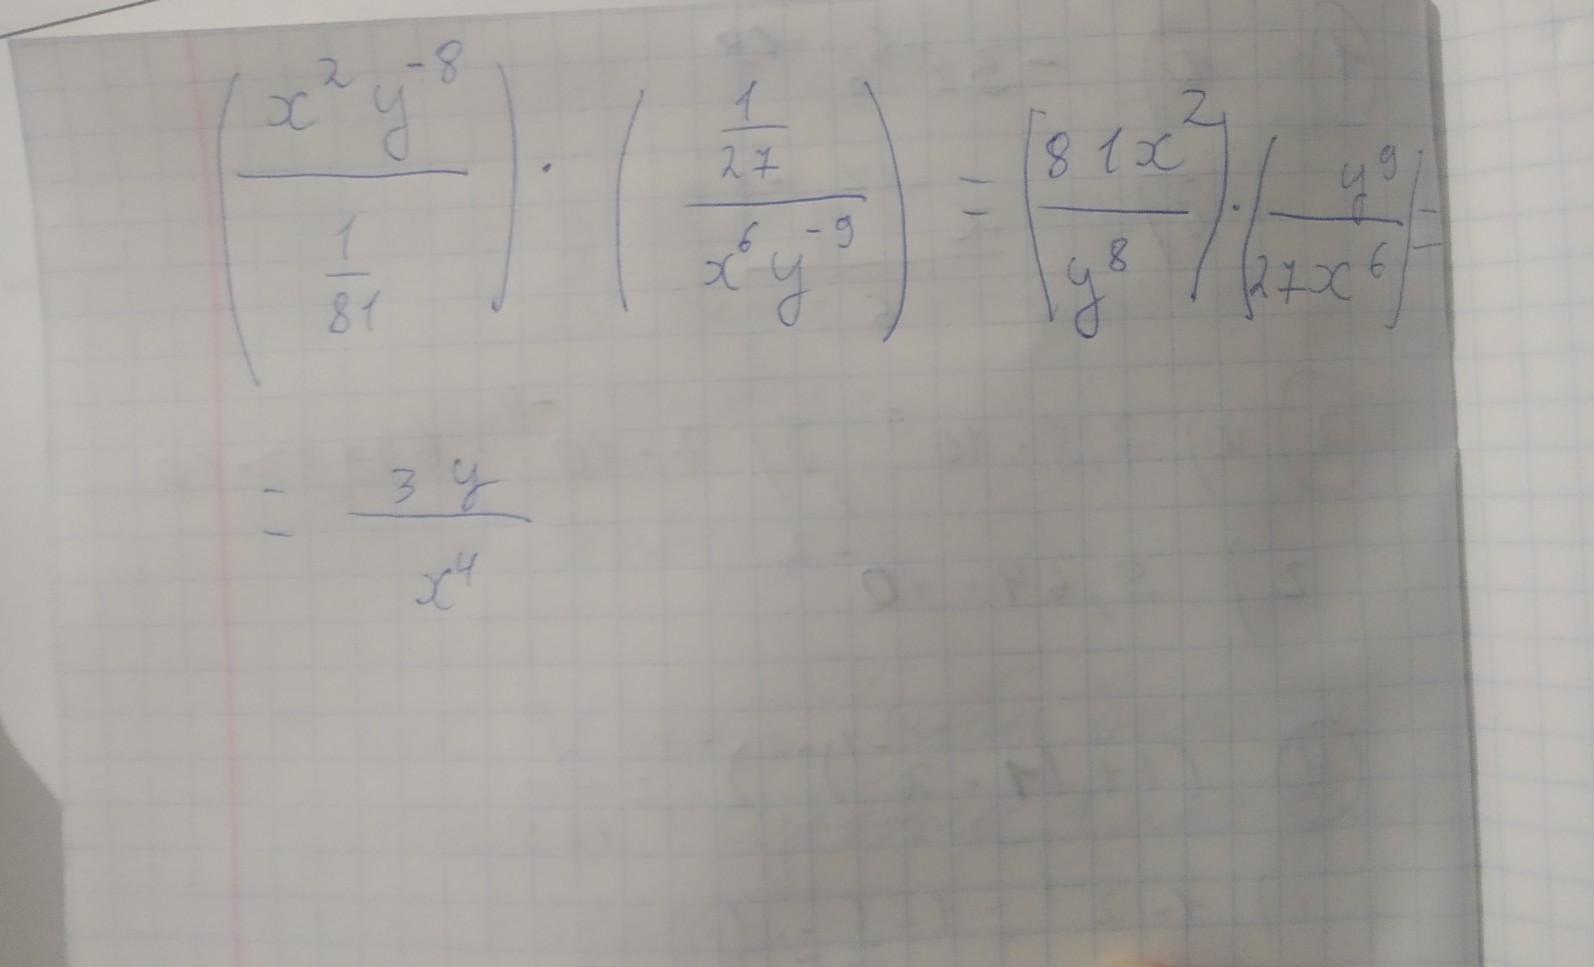 (x² y⁻⁸ / (1/81)) · ((1/27) / x⁶ y⁻⁹) = (81x² / y⁸) · (y⁹ / 27x⁶) =
= 3y / x⁴